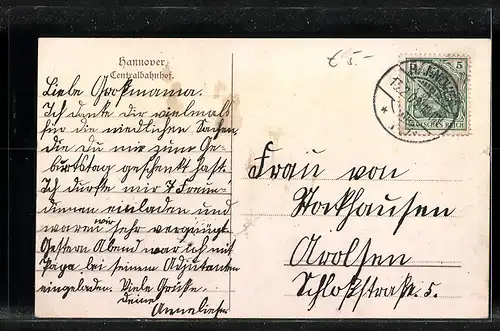 Hannover.
Centralbahnhof.
£ 5.-
5
DEUTSCHES REICH
Liebe Großmama.
Ich danke Dir vielmals
für die niedlichen Sachen,
die Du mir zum Ge-
burtstag geschenkt hast.
Ich durfte mir 7 Freun-
dinnen einladen und
wir
waren sehr vergnügt.
Gestern Abend war ich mit
Papa bei seinem Adjutanten
eingeladen. Viele Grüße
deine
Anneliese
Frau von
Stockhausen
Arolsen
Schloßstraße. 5.